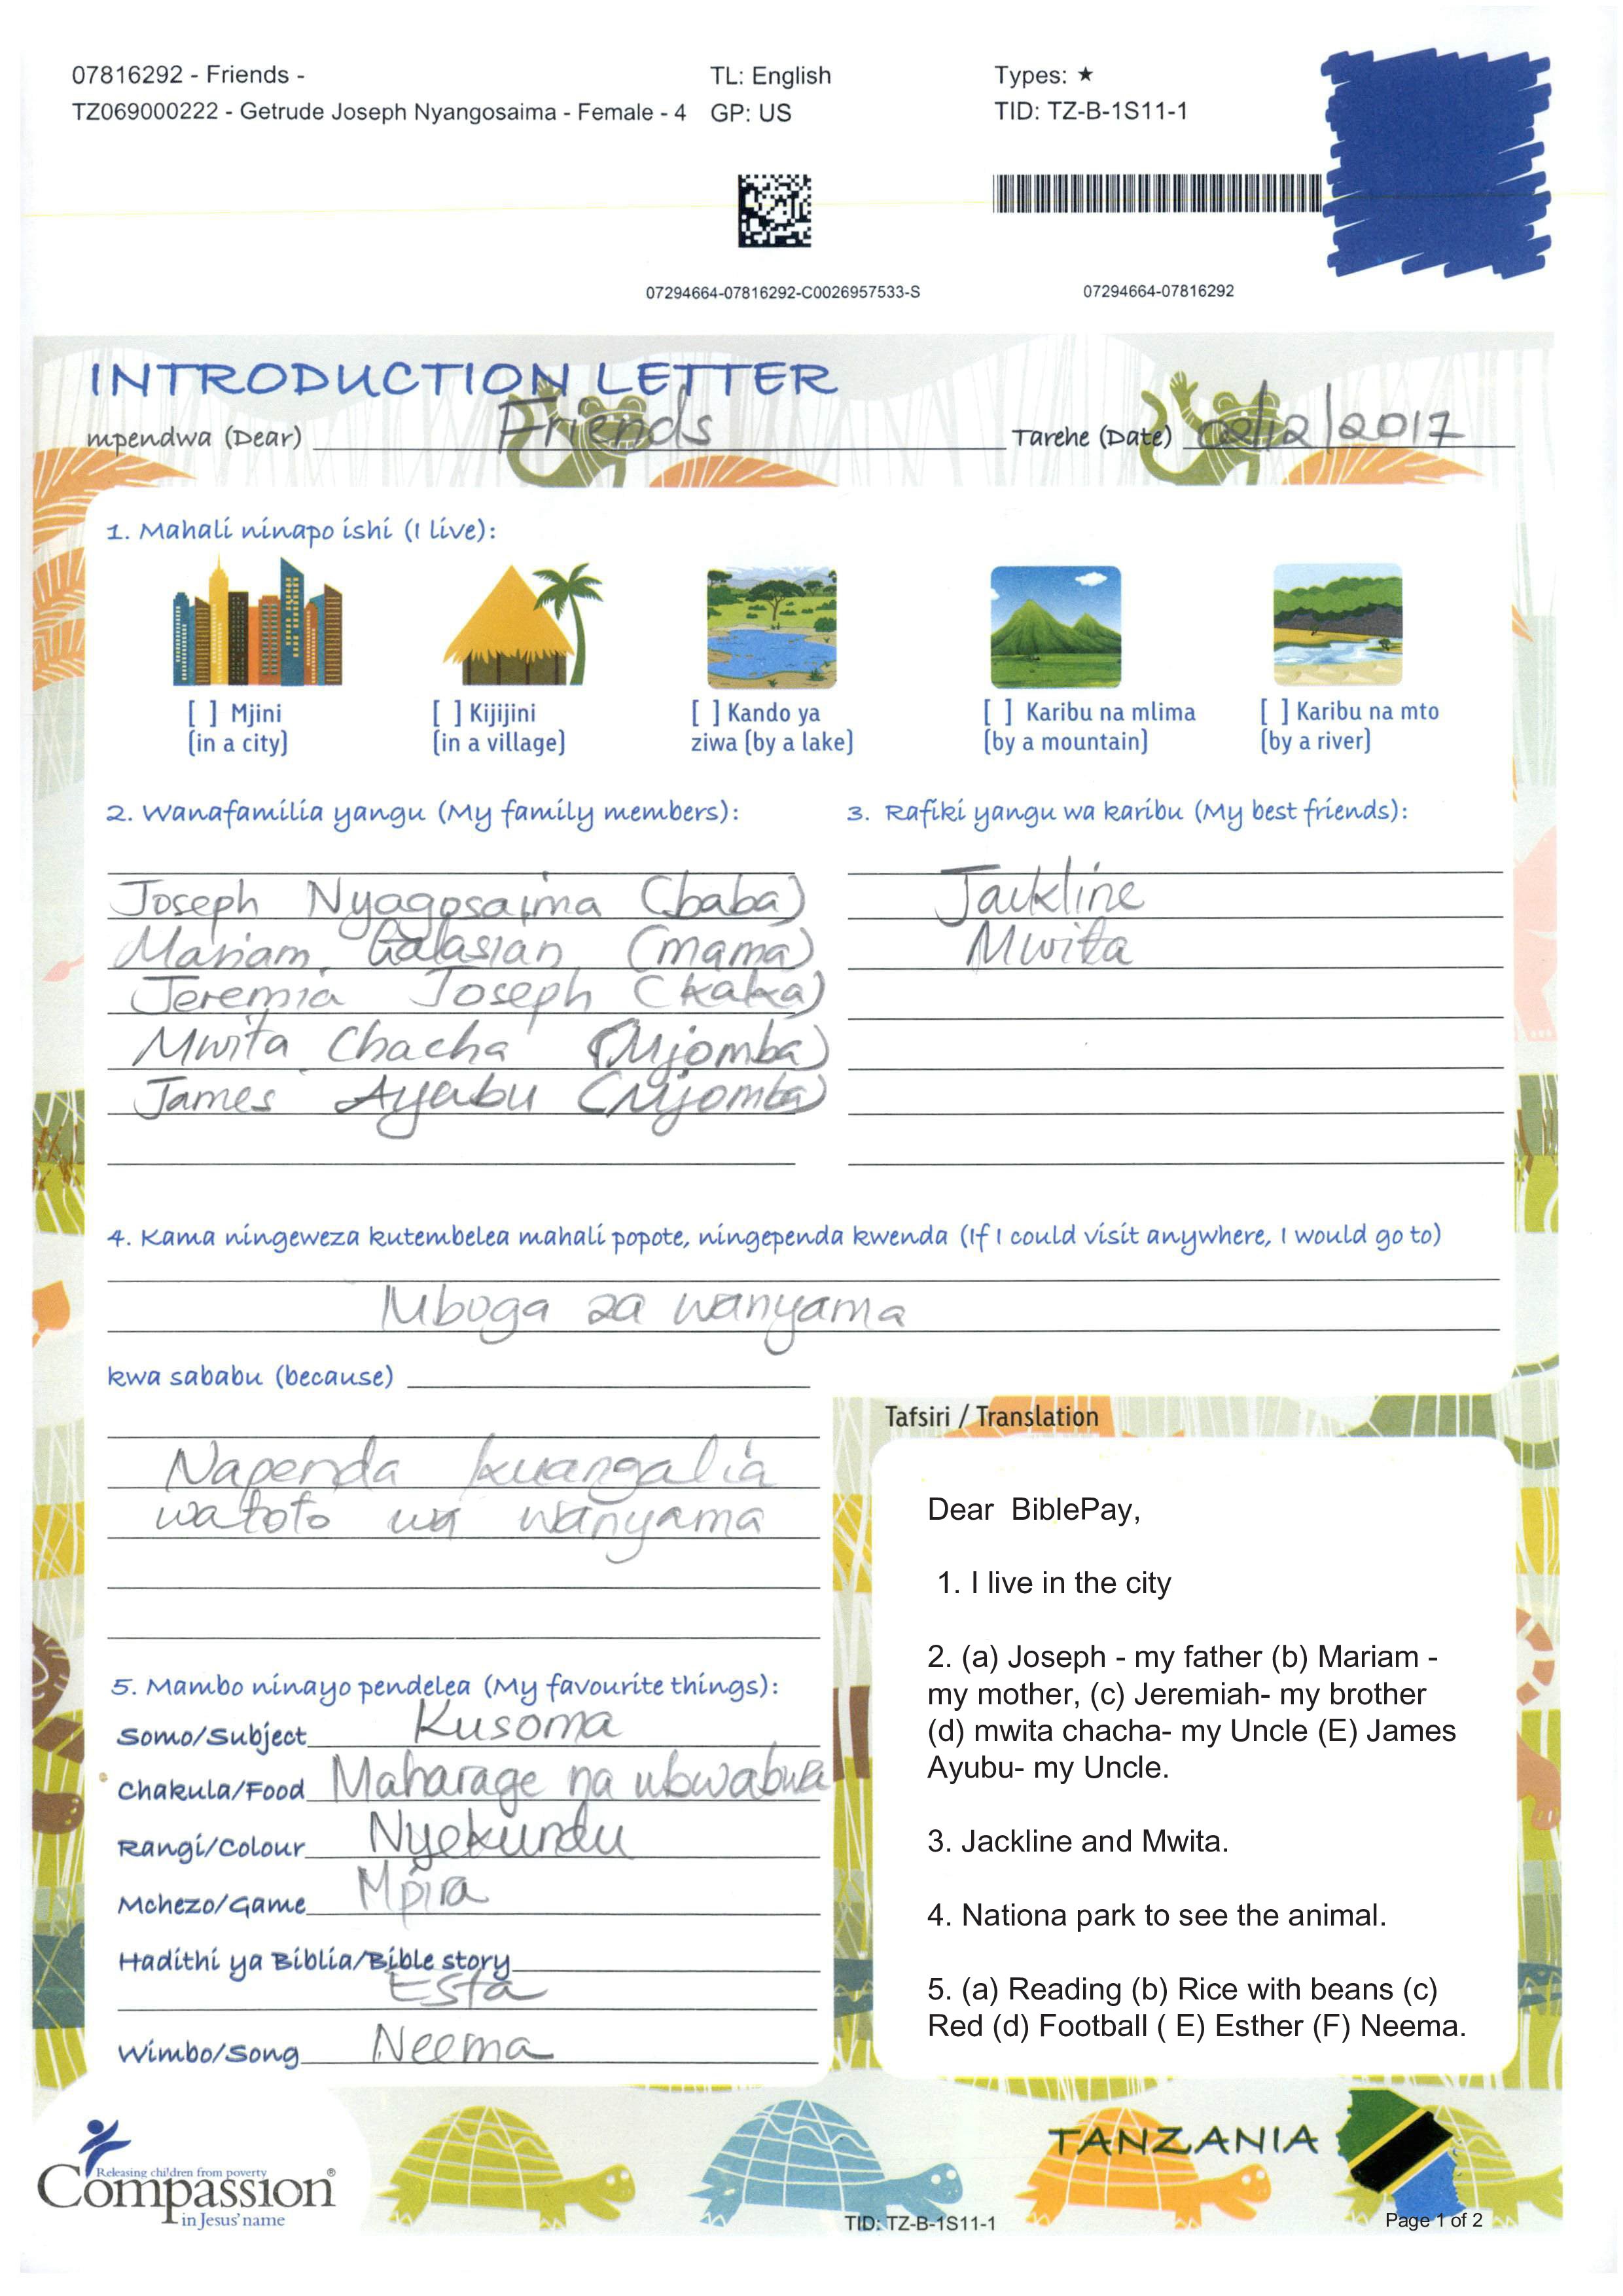 07816292 - Friends -
TL: English
Types: ★
TZ069000222 - Getrude Joseph Nyangosaima - Female - 4
GP: US
TID: TZ-B-1S11-1
07294664-07816292-C0026957533-S
07294664-07816292
INTRODUCTION LETTER
mpendwa (Dear) Friends
Tarehe (Date) /12/2017
1. Mahali ninapo ishi (I live):
[ ] Mjini
(in a city)
[ ] Kijijini
(in a village)
[ ] Kando ya
ziwa (by a lake)
[ ] Karibu na mlima
(by a mountain)
[ ] Karibu na mto
(by a river)
2. Wanafamilia yangu (My family members):
Joseph Nyagosaima (baba)
Mariam Galasian (mama)
Jeremia Joseph (kaka)
Mwita Chacha (Mjomba)
James Ayubu (Mjomba)
3. Rafiki yangu wa karibu (My best friends):
Jackline
Mwita
4. Kama ningeweza kutembelea mahali popote, ningependa kwenda (If I could visit anywhere, I would go to)
Mbuga za wanyama
kwa sababu (because)
Napenda kuangalia
watoto wa wanyama
5. Mambo ninayo pendelea (My favourite things):
Somo/Subject Kusoma
Chakula/Food Maharage na ubwabwa
Rangi/Colour Nyekundu
Mchezo/Game Mpira
Hadithi ya Biblia/Bible story
Esta
Wimbo/Song Neema
Tafsiri / Translation
Dear BiblePay,
1. I live in the city
2. (a) Joseph - my father (b) Mariam -
my mother, (c) Jeremiah- my brother
(d) mwita chacha- my Uncle (E) James
Ayubu- my Uncle.
3. Jackline and Mwita.
4. Nationa park to see the animal.
5. (a) Reading (b) Rice with beans (c)
Red (d) Football ( E) Esther (F) Neema.
Releasing children from poverty
Compassion®
in Jesus' name
TANZANIA
TID: TZ-B-1S11-1
Page 1 of 2